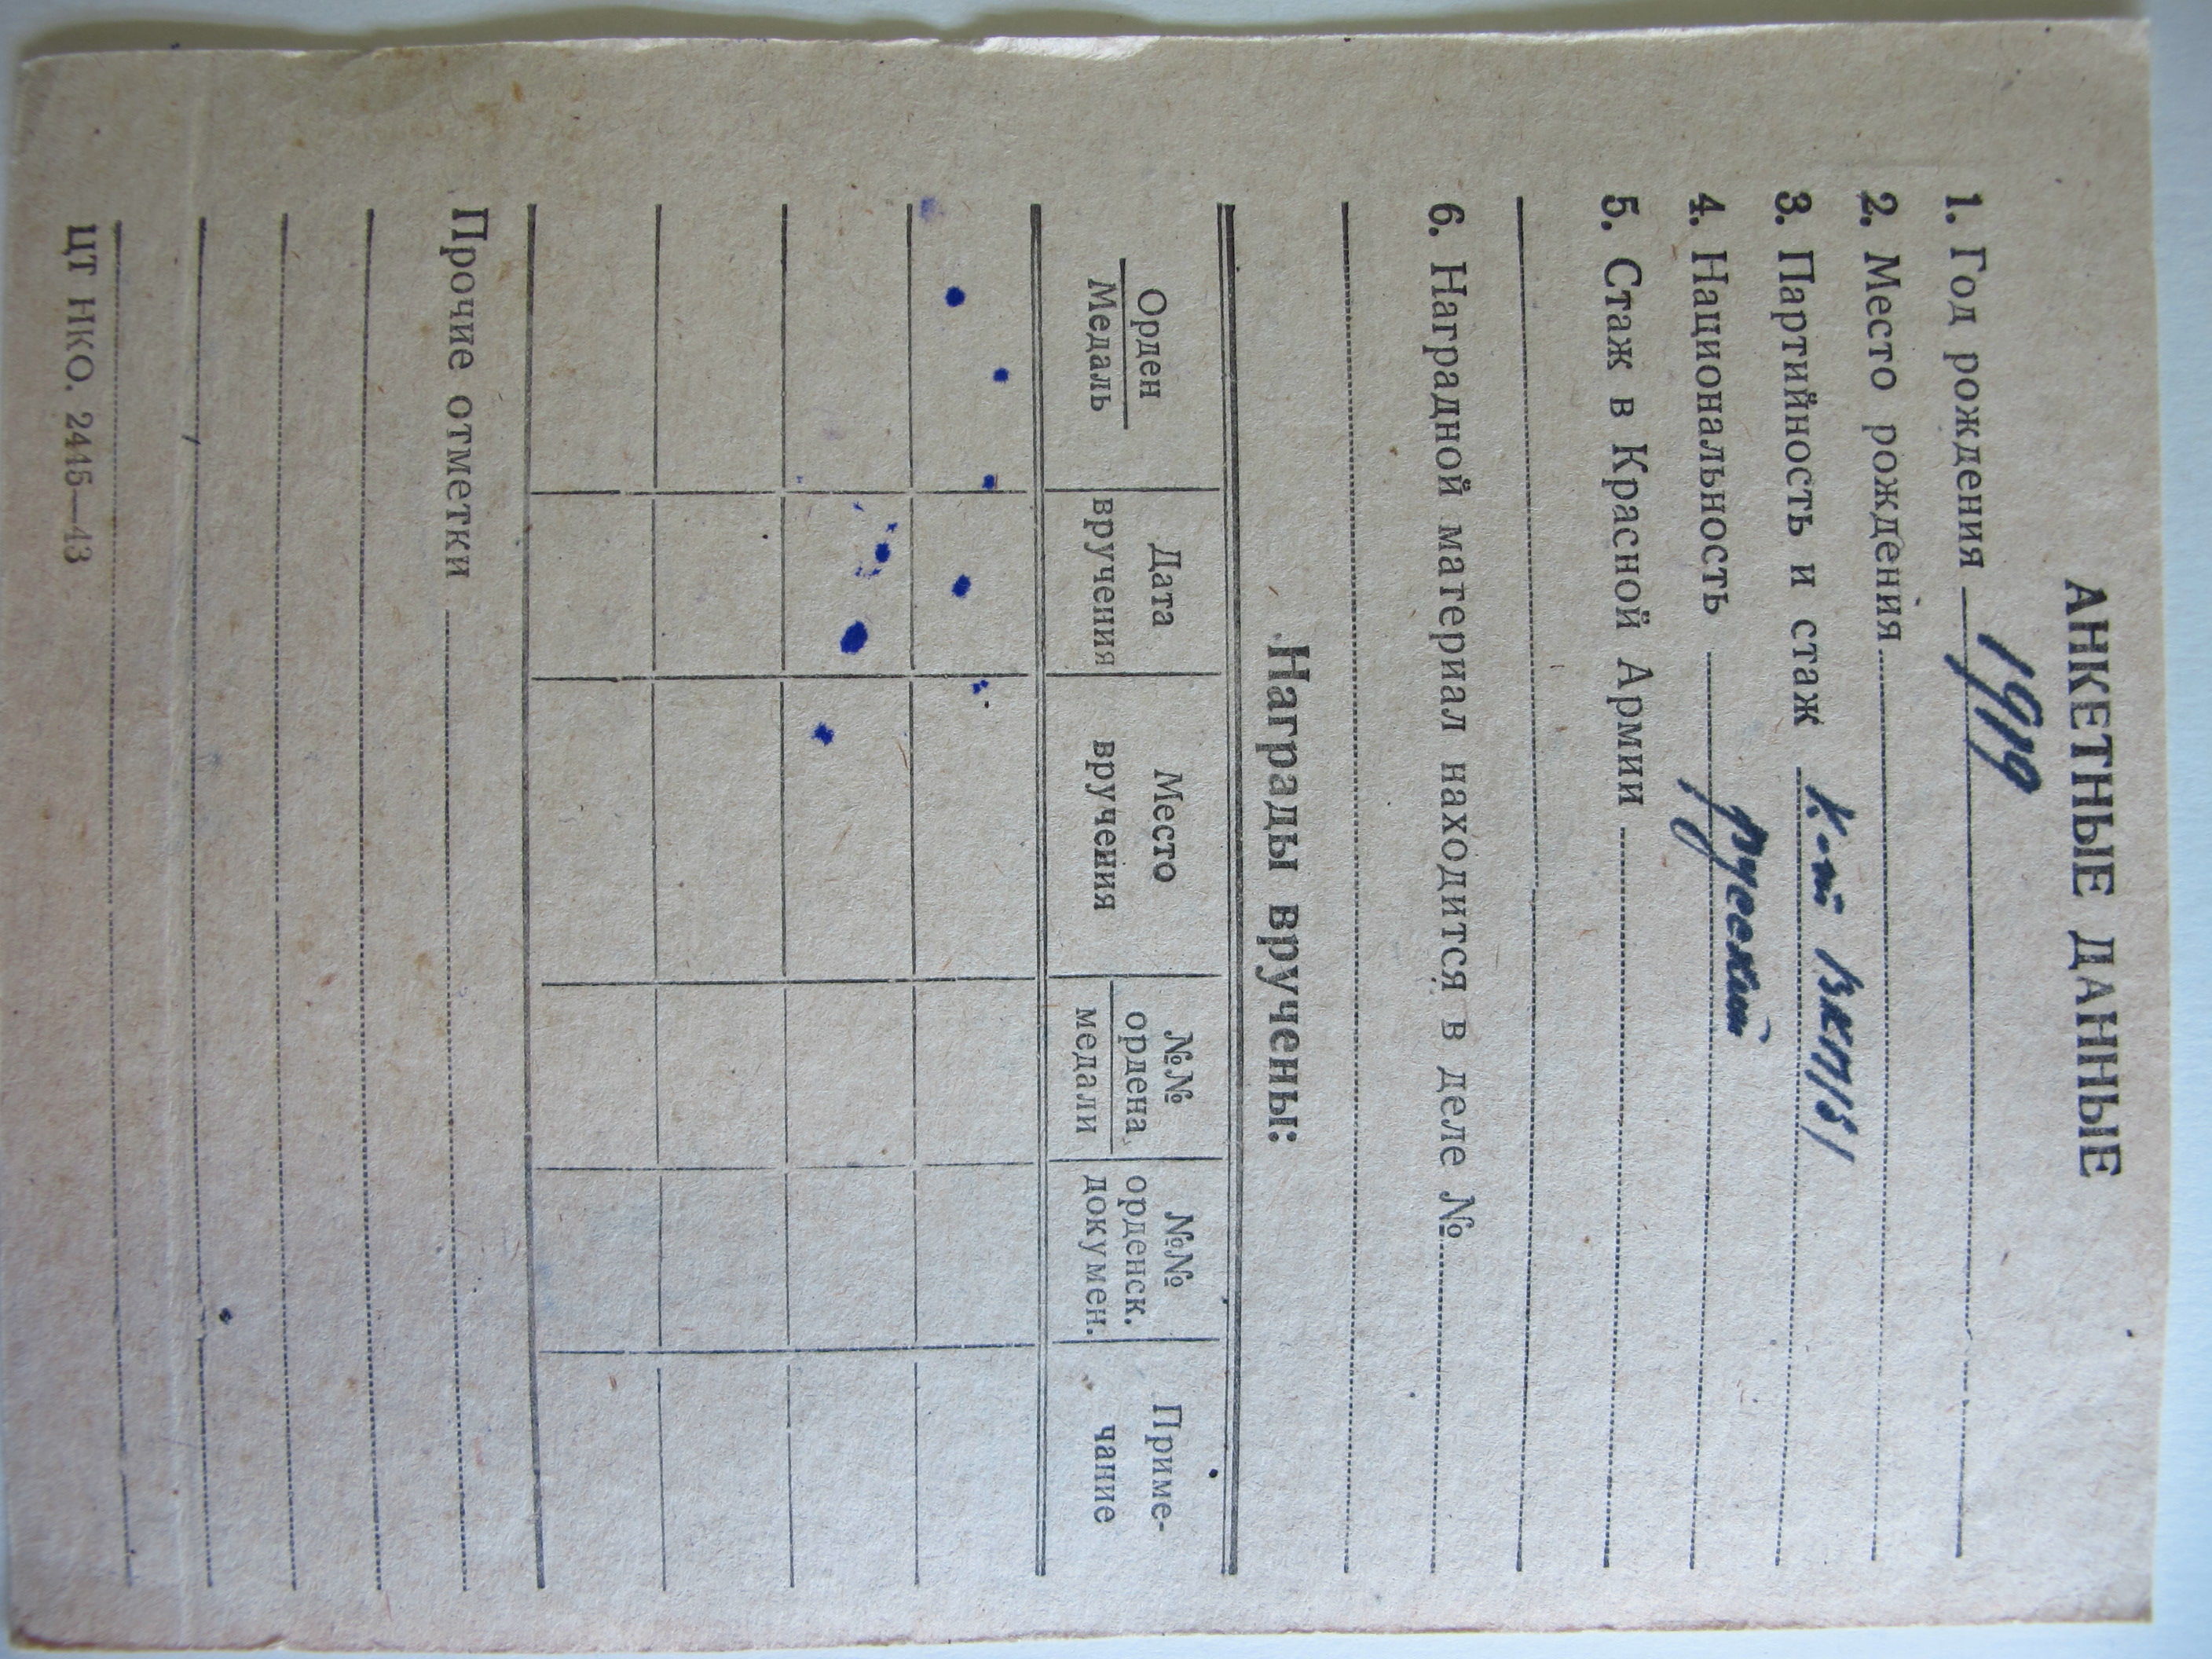 АНКЕТНЫЕ ДАННЫЕ
1. Год рождения 1919
2. Место рождения
3. Партийность и стаж к-т ВКП/б/
4. Национальность русский
5. Стаж в Красной Армии
6. Наградной материал находится в деле №
Награды вручены:
Орден Дата Место №№ №№ Приме-
Медаль вручения вручения ордена орденск. чание
медали докумен.
Прочие отметки
ЦТ НКО. 2445—43